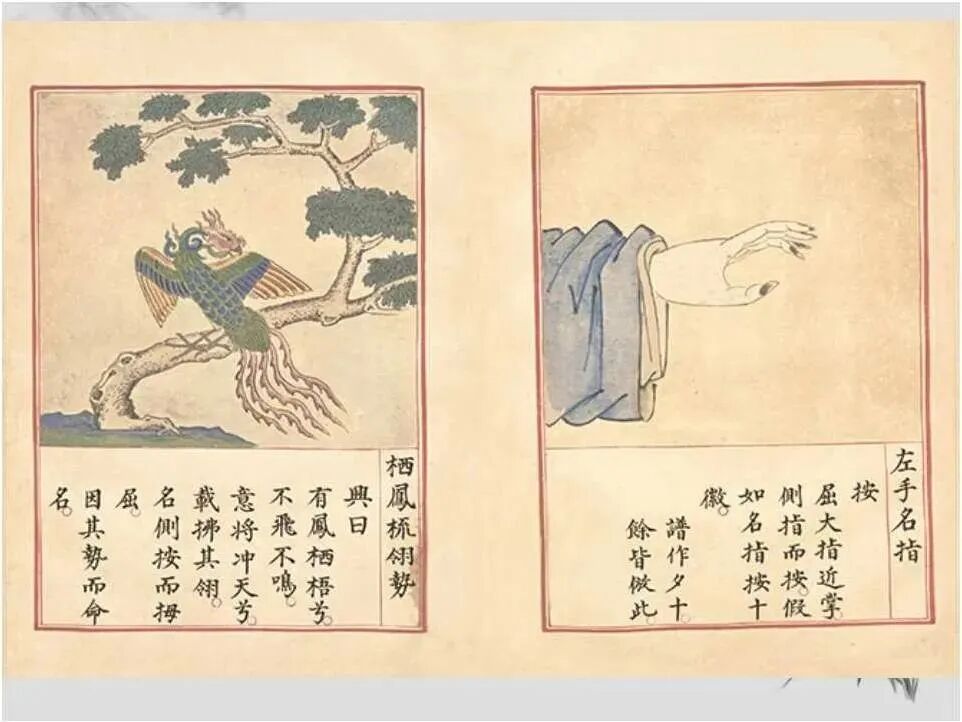 左手名指
按
屈大指近掌。
側指而按。假
如名指按十
徽。
譜作夕十。
餘皆倣此。
栖鳳梳翎勢
興曰
有鳳栖梧兮。
不飛不鳴。
意將冲天兮。
載拂其翎。
名側按而拇
屈
因其勢而命
名。